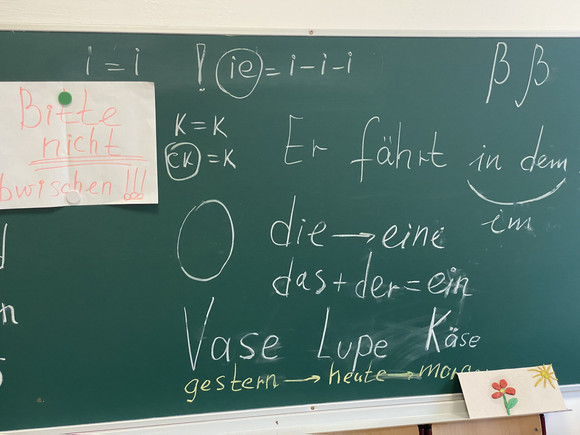 i = i ! ie = i-i-i ß ß
Bitte
nicht
bwischen!!!
K = K
ck = K
Er fährt in dem
im
die → eine
das + der = ein
Vase Lupe Käse
gestern → heute →